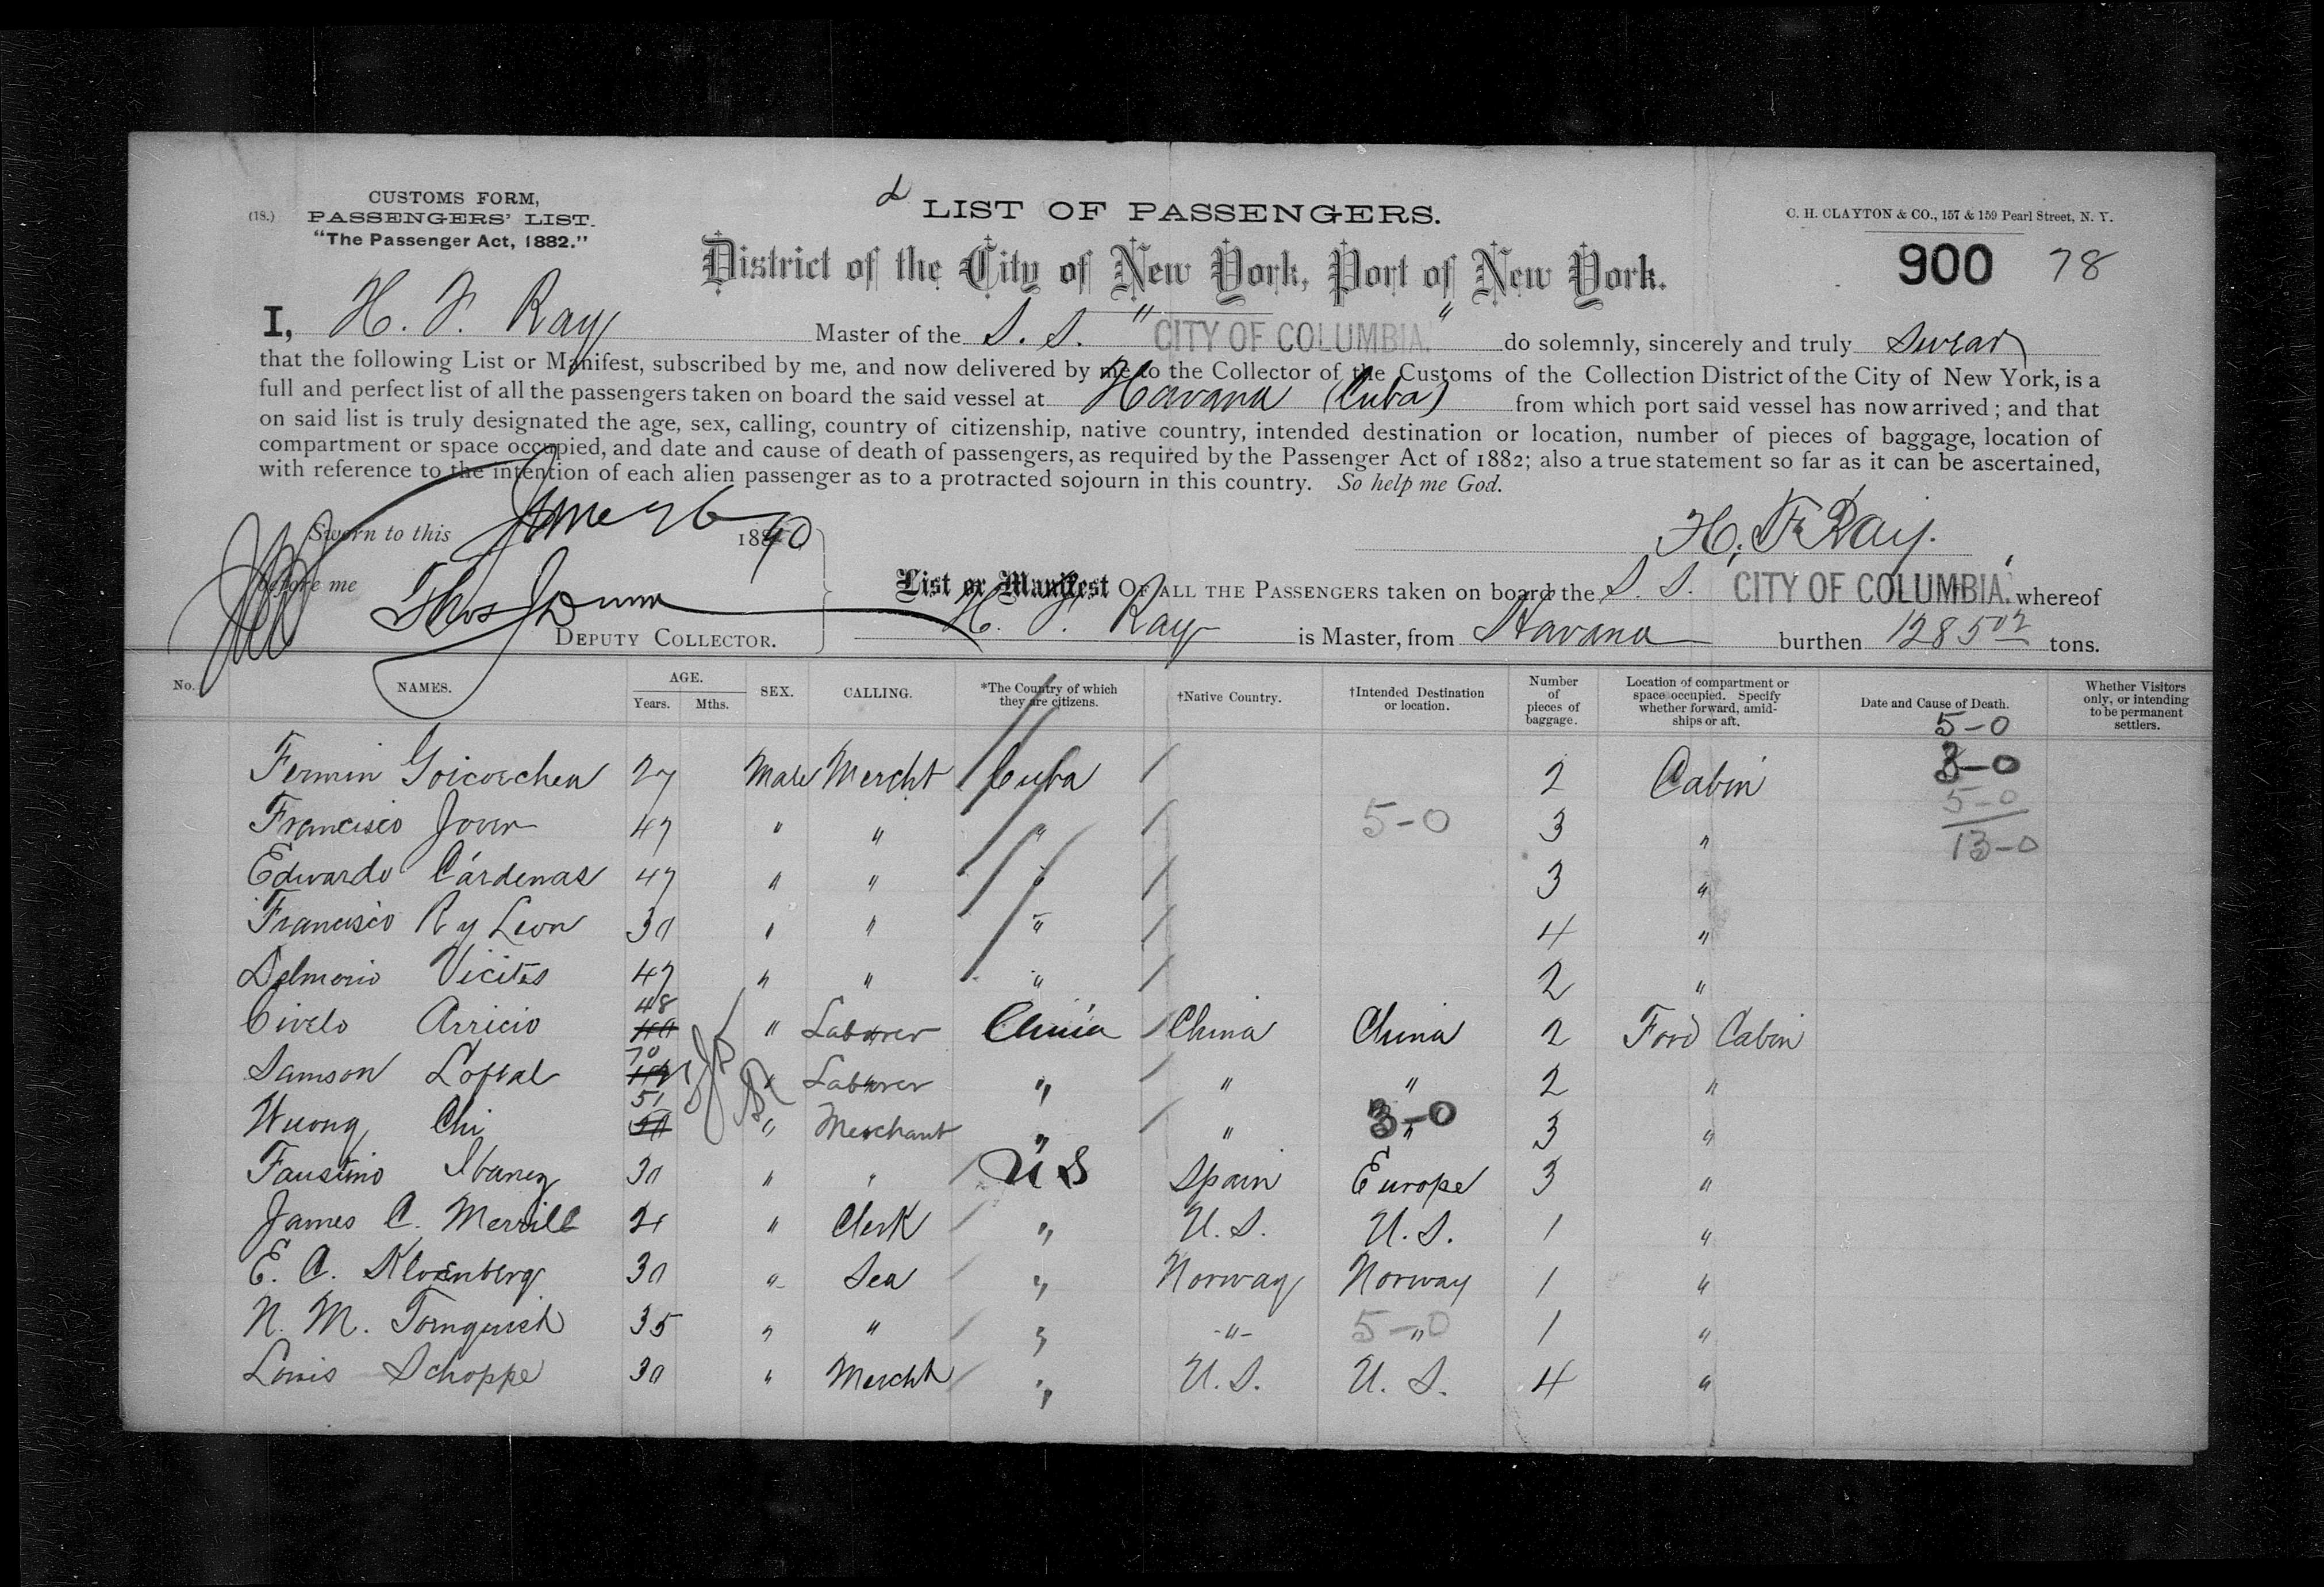 CUSTOMS FORM,
(18.) PASSENGERS' LIST.
"The Passenger Act, 1882."
LIST OF PASSENGERS.
C. H. CLAYTON & CO., 157 & 159 Pearl Street, N. Y.
District of the City of New York, Port of New York.
900 78
I, H. F. Ray Master of the S. S. "CITY OF COLUMBIA." do solemnly, sincerely and truly swear
that the following List or Manifest, subscribed by me, and now delivered by me to the Collector of the Customs of the Collection District of the City of New York, is a
full and perfect list of all the passengers taken on board the said vessel at Havana (Cuba) from which port said vessel has now arrived; and that
on said list is truly designated the age, sex, calling, country of citizenship, native country, intended destination or location, number of pieces of baggage, location of
compartment or space occupied, and date and cause of death of passengers, as required by the Passenger Act of 1882; also a true statement so far as it can be ascertained,
with reference to the intention of each alien passenger as to a protracted sojourn in this country. So help me God.
Sworn to this June 26 1890
H. F. Ray.
before me Thos J Dunn
DEPUTY COLLECTOR.
List or Manifest OF ALL THE PASSENGERS taken on board the S. S. CITY OF COLUMBIA. whereof
H. F. Ray is Master, from Havana burthen 1285 02 tons.
No. NAMES. AGE. Years. Mths. SEX. CALLING. *The Country of which they are citizens. †Native Country. †Intended Destination or location. Number of pieces of baggage. Location of compartment or space occupied. Specify whether forward, amidships or aft. Date and Cause of Death. Whether Visitors only, or intending to be permanent settlers.
5-0
Fermin Goicoechea 27 Male Mercht Cuba 2 Cabin 3-0
5-0
Francisco Jover 47 " " " 5-0 3 "
13-0
Edwardo Cárdenas 47 " " " 3 "
Francisco R y Leon 30 " " " 4 "
47 " " " 2 "
Arricio 48 40 " Laborer China China China 2 Ford Cabin
Samson 70 " Laborer " " " 2 "
Wuong Chi 51 50 " Merchant " " 3-0 " 3 "
Faustino Ibanez 30 " " U S Spain Europe 3 "
James C. Merrill 21 " Clerk " U. S. U. S. 1 "
E. A. Kloenberg 30 " Sea " Norway Norway 1 "
N. M. Tornquist 35 " " " " 5-0 " 1 "
Louis Schoppe 30 " Mercht " U. S. U. S. 4 "